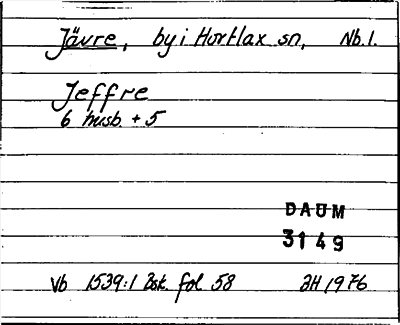 Jävre, by i Hortlax sn, Nb.l.
Jeffre
6 husb. + 5
DAUM
3149
Vb 1539:1 Bsk fol 58 JH 1976